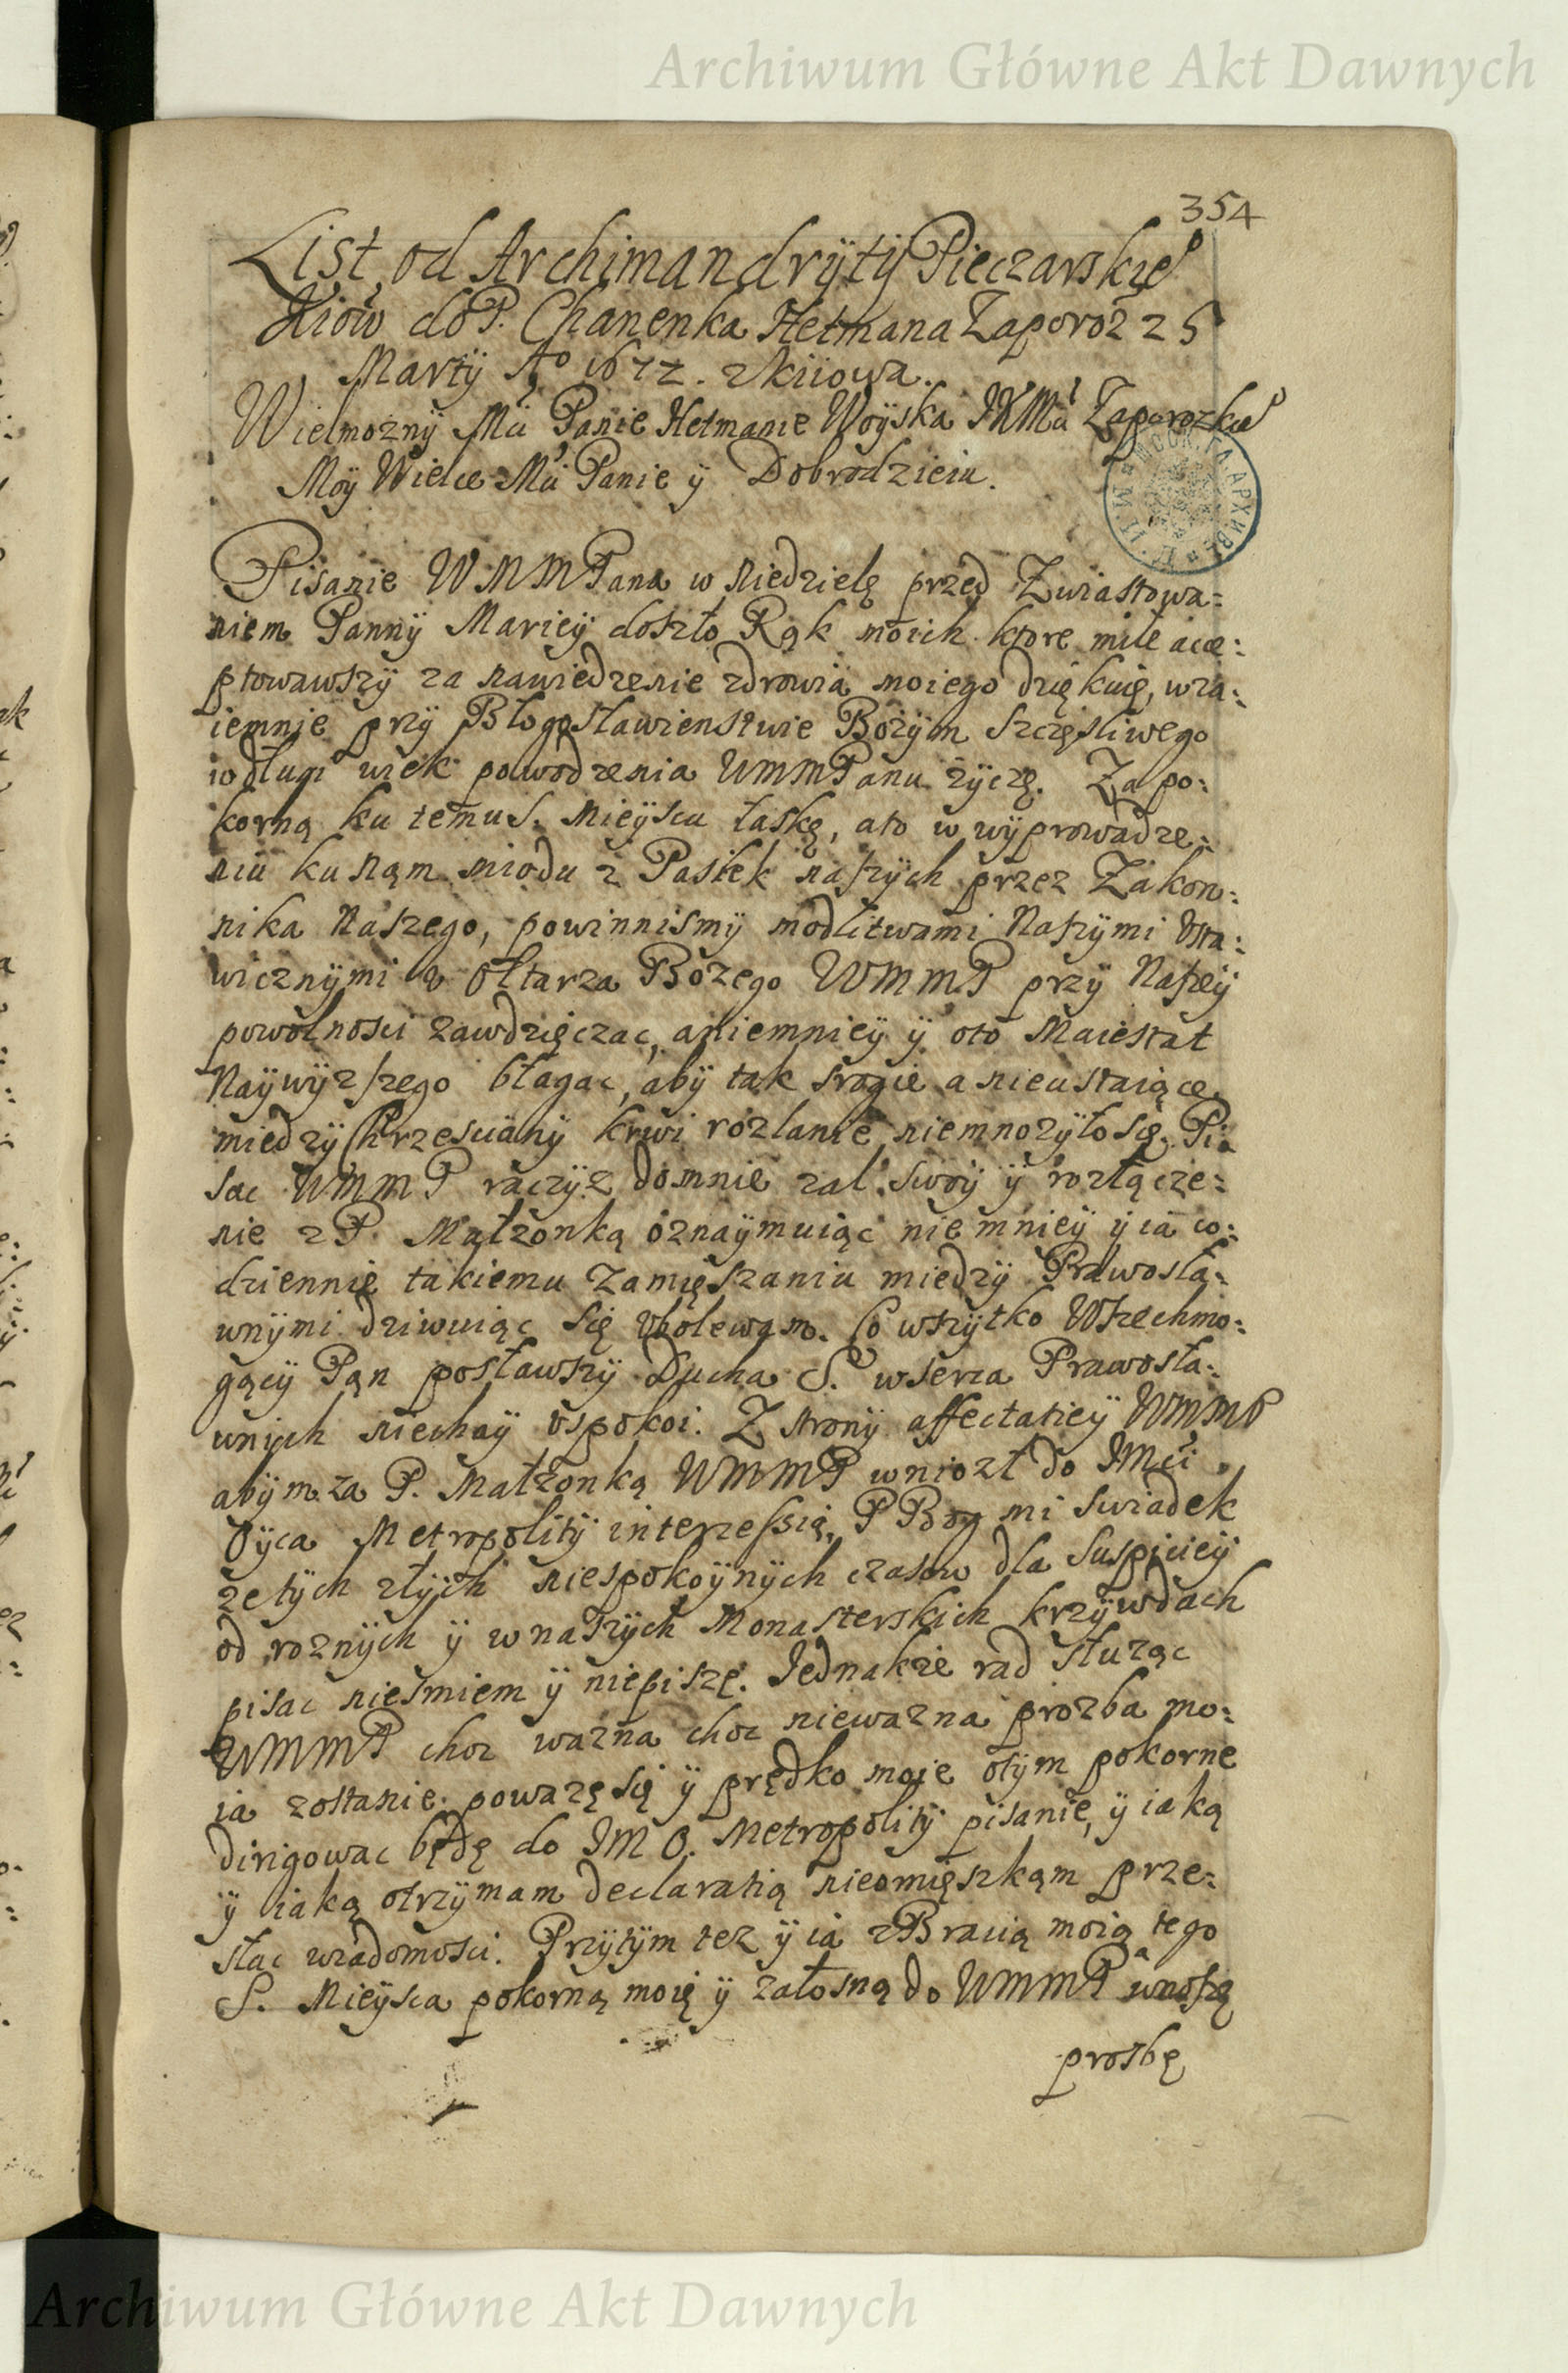 Archiwum Główne Akt Dawnych
354
List od Archimandrÿtÿ Pieczarskie͡
Kiow do P. Chanenka Hetmana Zaporoz 25
Martÿ Ao 1672. z kiiowa.
Wielmoznÿ Mći Panie Hetmanie Woÿska JKMći Zaporozkie
Moÿ Wielce Mći Panie ÿ Dobrodzieiu.
Pisanie WMMPana w niedzielę przed Zwiastowa=
niem Pannÿ Marieÿ doszło Rąk moich. ktore mile acce=
ptowawszÿ za nawiedzenie zdrowia moiego dziękuię, wza=
iemnie przÿ Błogosławienstwie Bozÿm szczęsliwego
w długi wiek powodzenia WMMPanu zÿczę. Za po=
korną ku temu S. Mieÿscu łaskę, a to w wÿprowadze=
niu ku nąm miodu z Pasiek naszÿch przez Zakon=
nika Naszego, powinnismÿ modlitwami Naszÿmi Usta=
wicznÿmi v Ołtarza Bozego WMMP przÿ Naszeÿ
powolnosci zawdzięczac, a niemnieÿ ÿ oto Maiestat
Naÿwÿzszego błagac, abÿ tak srogie a nieustaiące
miedzÿ Chrzescianÿ krwi rozlanie niemnozÿło się. Pi=
sac WMMP raczÿz do mnie zal swoÿ ÿ rozłącze=
nie z P. Małzonką oznaÿmuiąc niemnieÿ ÿ ia co=
dziennie takiemu zamięszaniu miedzÿ Prawosła=
wnÿmi dziwuiąc się vbolewąm. Co wszÿtko Wszechmo=
gącÿ Pąn posławszÿ Ducha S. w serca Prawosła=
wnÿch niechaÿ vspokoi. Z stronÿ affectatieÿ WMMP
abÿm za P. Małzonką WMMP wniozł do JMći
Oÿca Metropolitÿ interzessią, P Bog mi swiadek
ze tÿch złÿch niespokoÿnÿch czasow dla suspicieÿ
od roznÿch ÿ w naszÿch Monasterskich krzÿwdach
pisac niesmiem ÿ niepiszę. Jednakze rad słuząc
WMMP choc wazna choc niewazna prozba mo=
ia zostanie. powazę się ÿ prędko moie otÿm pokorne
dirigowac będę do JM O. Metropolitÿ pisanie, ÿ iaką
ÿ iaką otrzÿmam declaratią nieomięszkąm prze=
słac wiadomosci. Przÿtÿm tez ÿ ia z Bracią moią tego
S. Mieÿsca pokorną moię ÿ załosną do WMMPa wnoszę
prosbę
Archiwum Główne Akt Dawnych